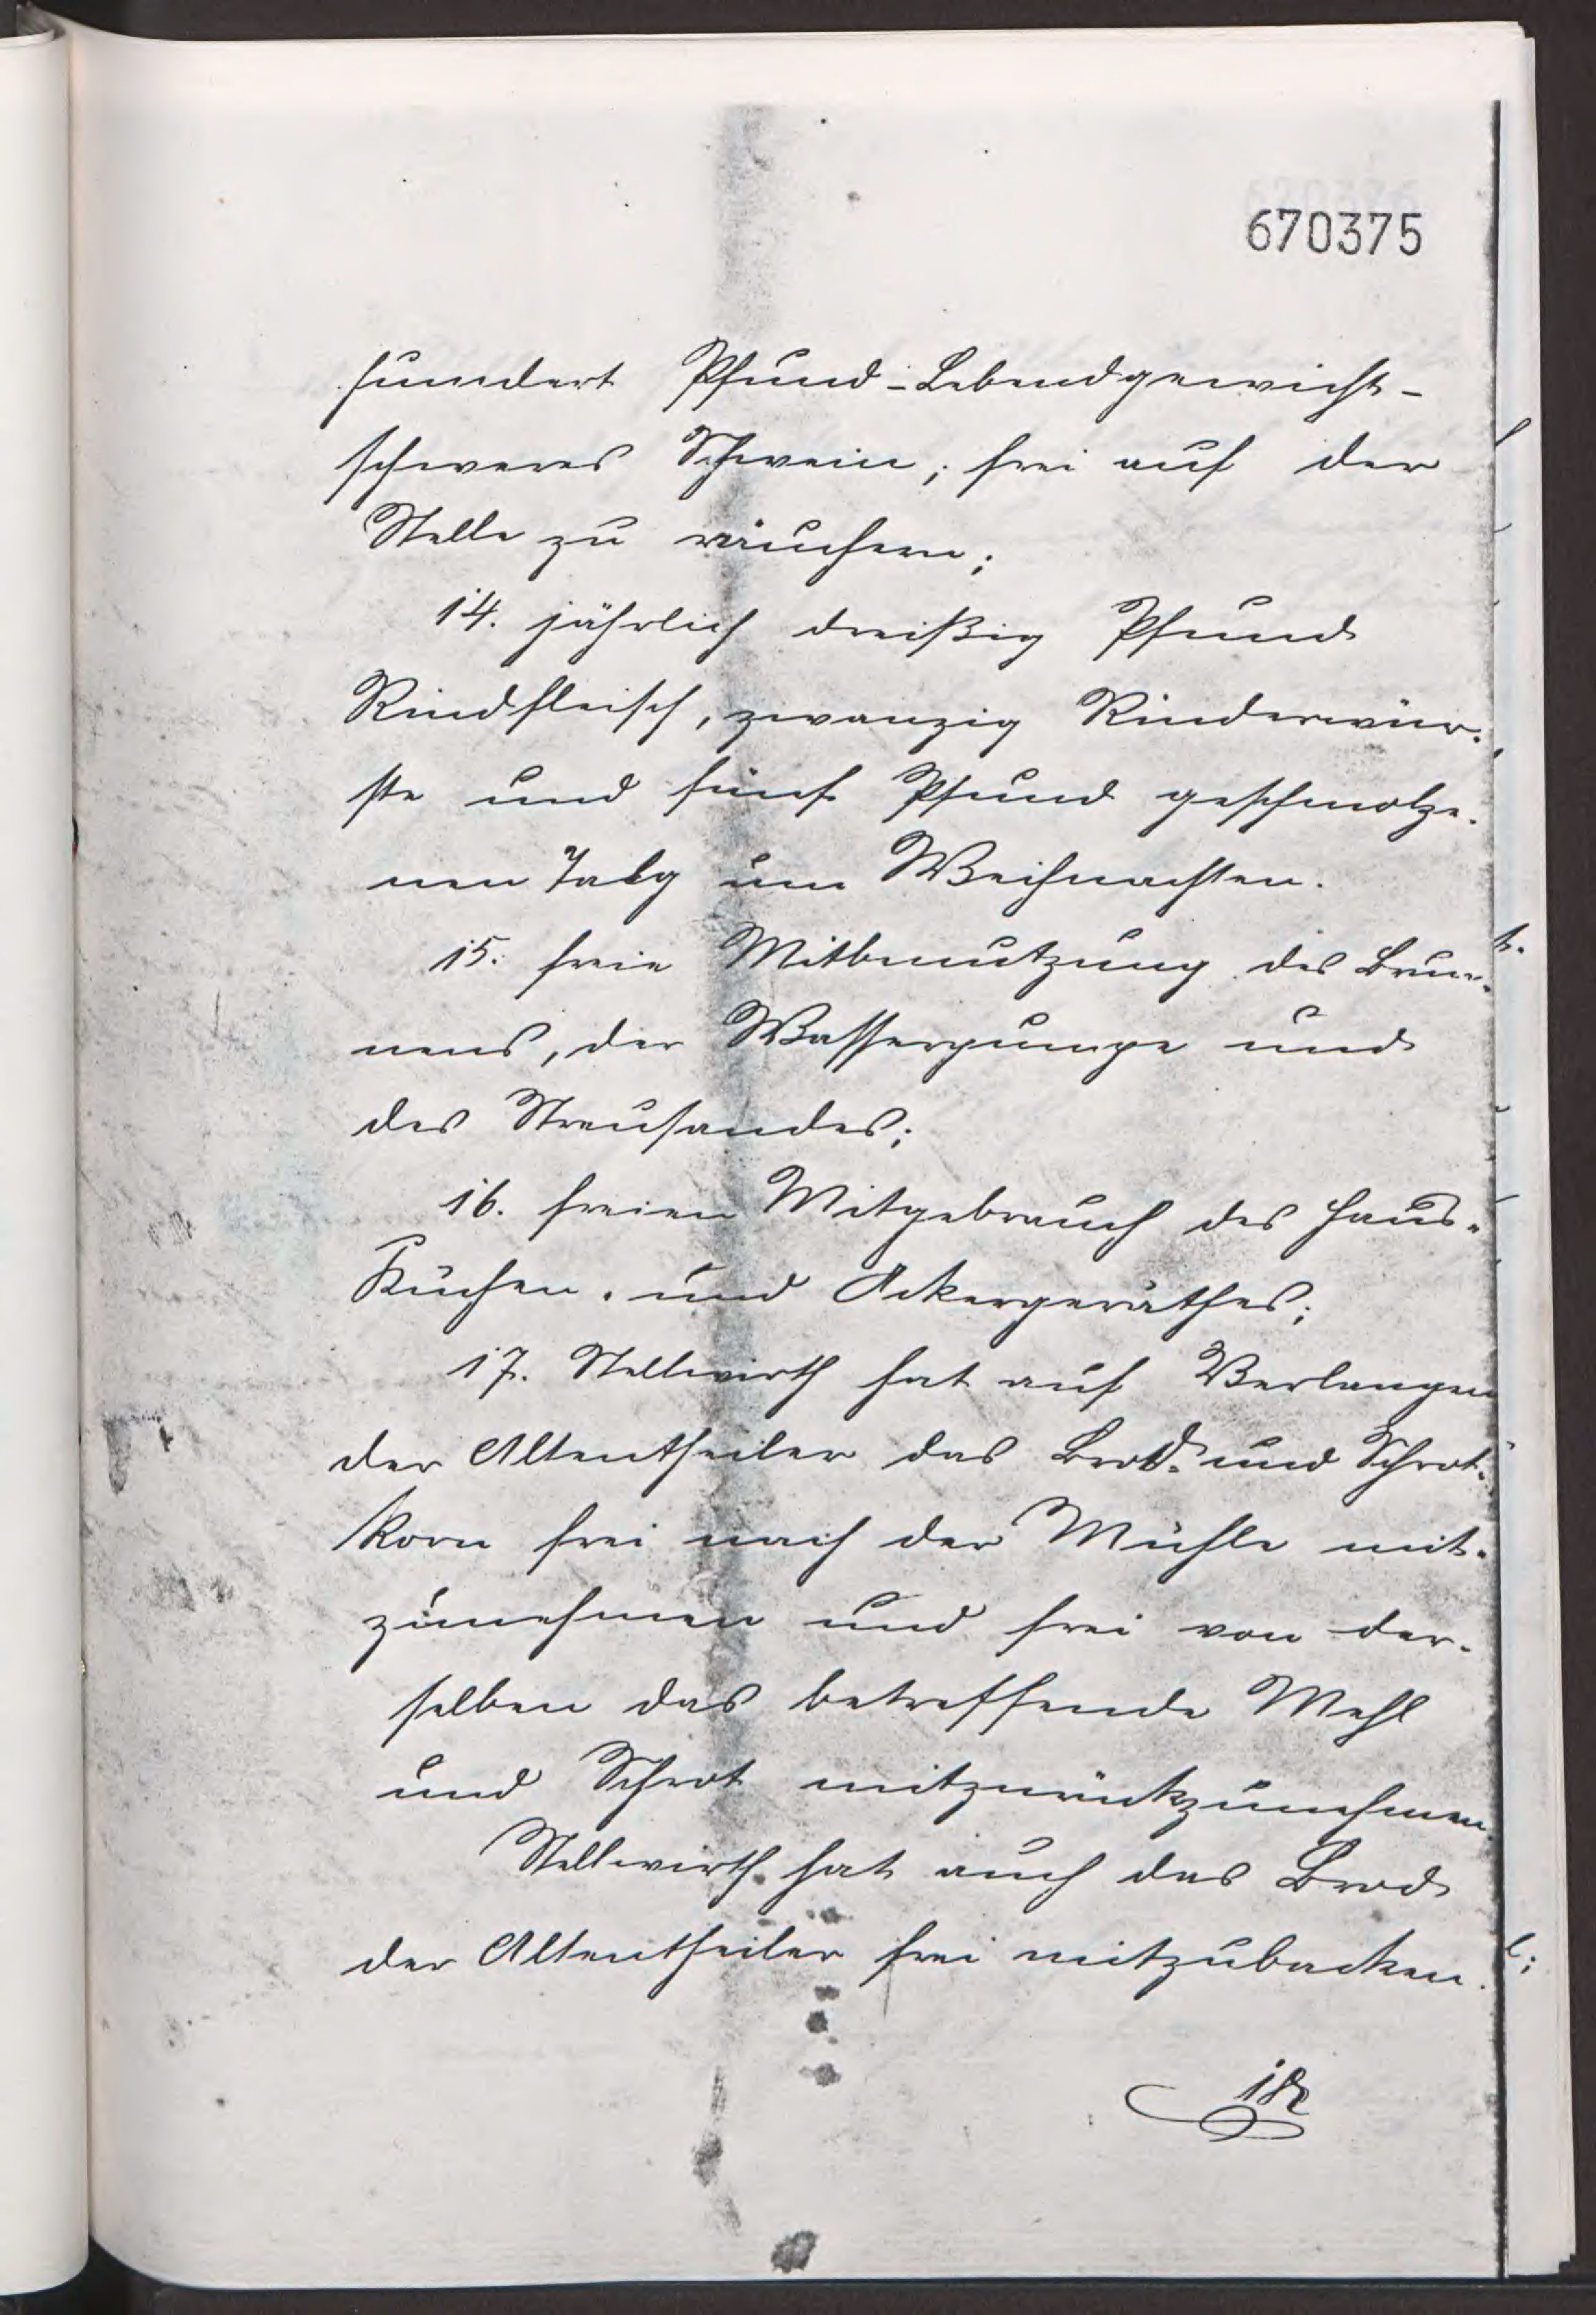 670375
hundert Pfund-Lebendgewicht-
schweres Schwein, frei auf der
Stelle zu räuchern;
14. jährlich dreißig Pfund
Rindfleisch, zwanzig Rinderwür-
ste und fünf Pfund geschmolze-
nen Talg um Weihnachten.
15. freie Mitbenutzung des Brun-
nens, der Wasserpumpe und
des Streusandes;
16. freien Mitgebrauch des Haus-
Küchen- und Ackergeräthes;
17. Stellwirth hat auf Verlangen
der Altentheiler das Brod- und Schrot-
korn frei nach der Mühle mit-
zunehmen und frei von der-
selben das betreffende Mehl
und Schrot mitzurückzunehmen.
Stellwirth hat auch das Brod
der Altentheiler frei mitzubacken.
18